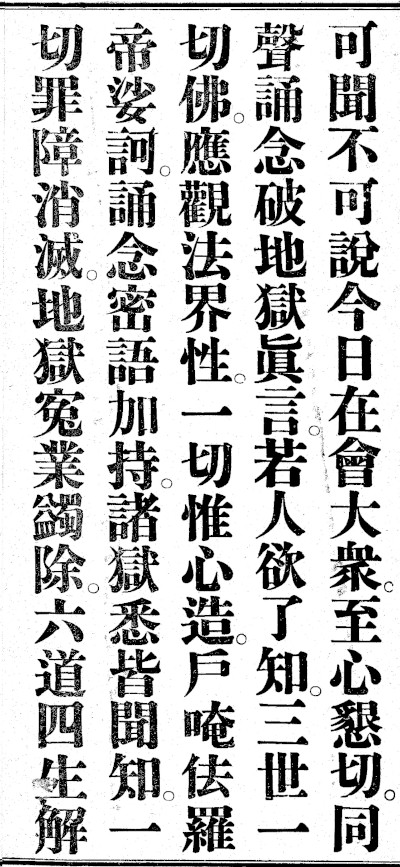 可聞不可說今日在會大衆。至心懇切。同
聲誦念破地獄眞言。若人欲了知。三世一
切佛。應觀法界性。一切惟心造。戶唵佉羅
帝娑訶。誦念密語加持。諸獄悉皆聞知。一
切罪障消滅。地獄寃業蠲除。六道四生解